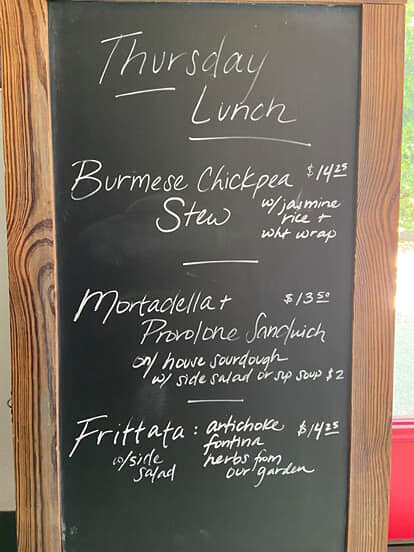 Thursday
Lunch
Burmese Chickpea $14.25
Stew w/jasmine
rice +
wht wrap
Mortadella + $13.50
Provolone Sandwich
on house sourdough
w/ side salad or sup soup $2
Frittata : artichoke $14.25
fontina
w/side herbs from
salad our garden